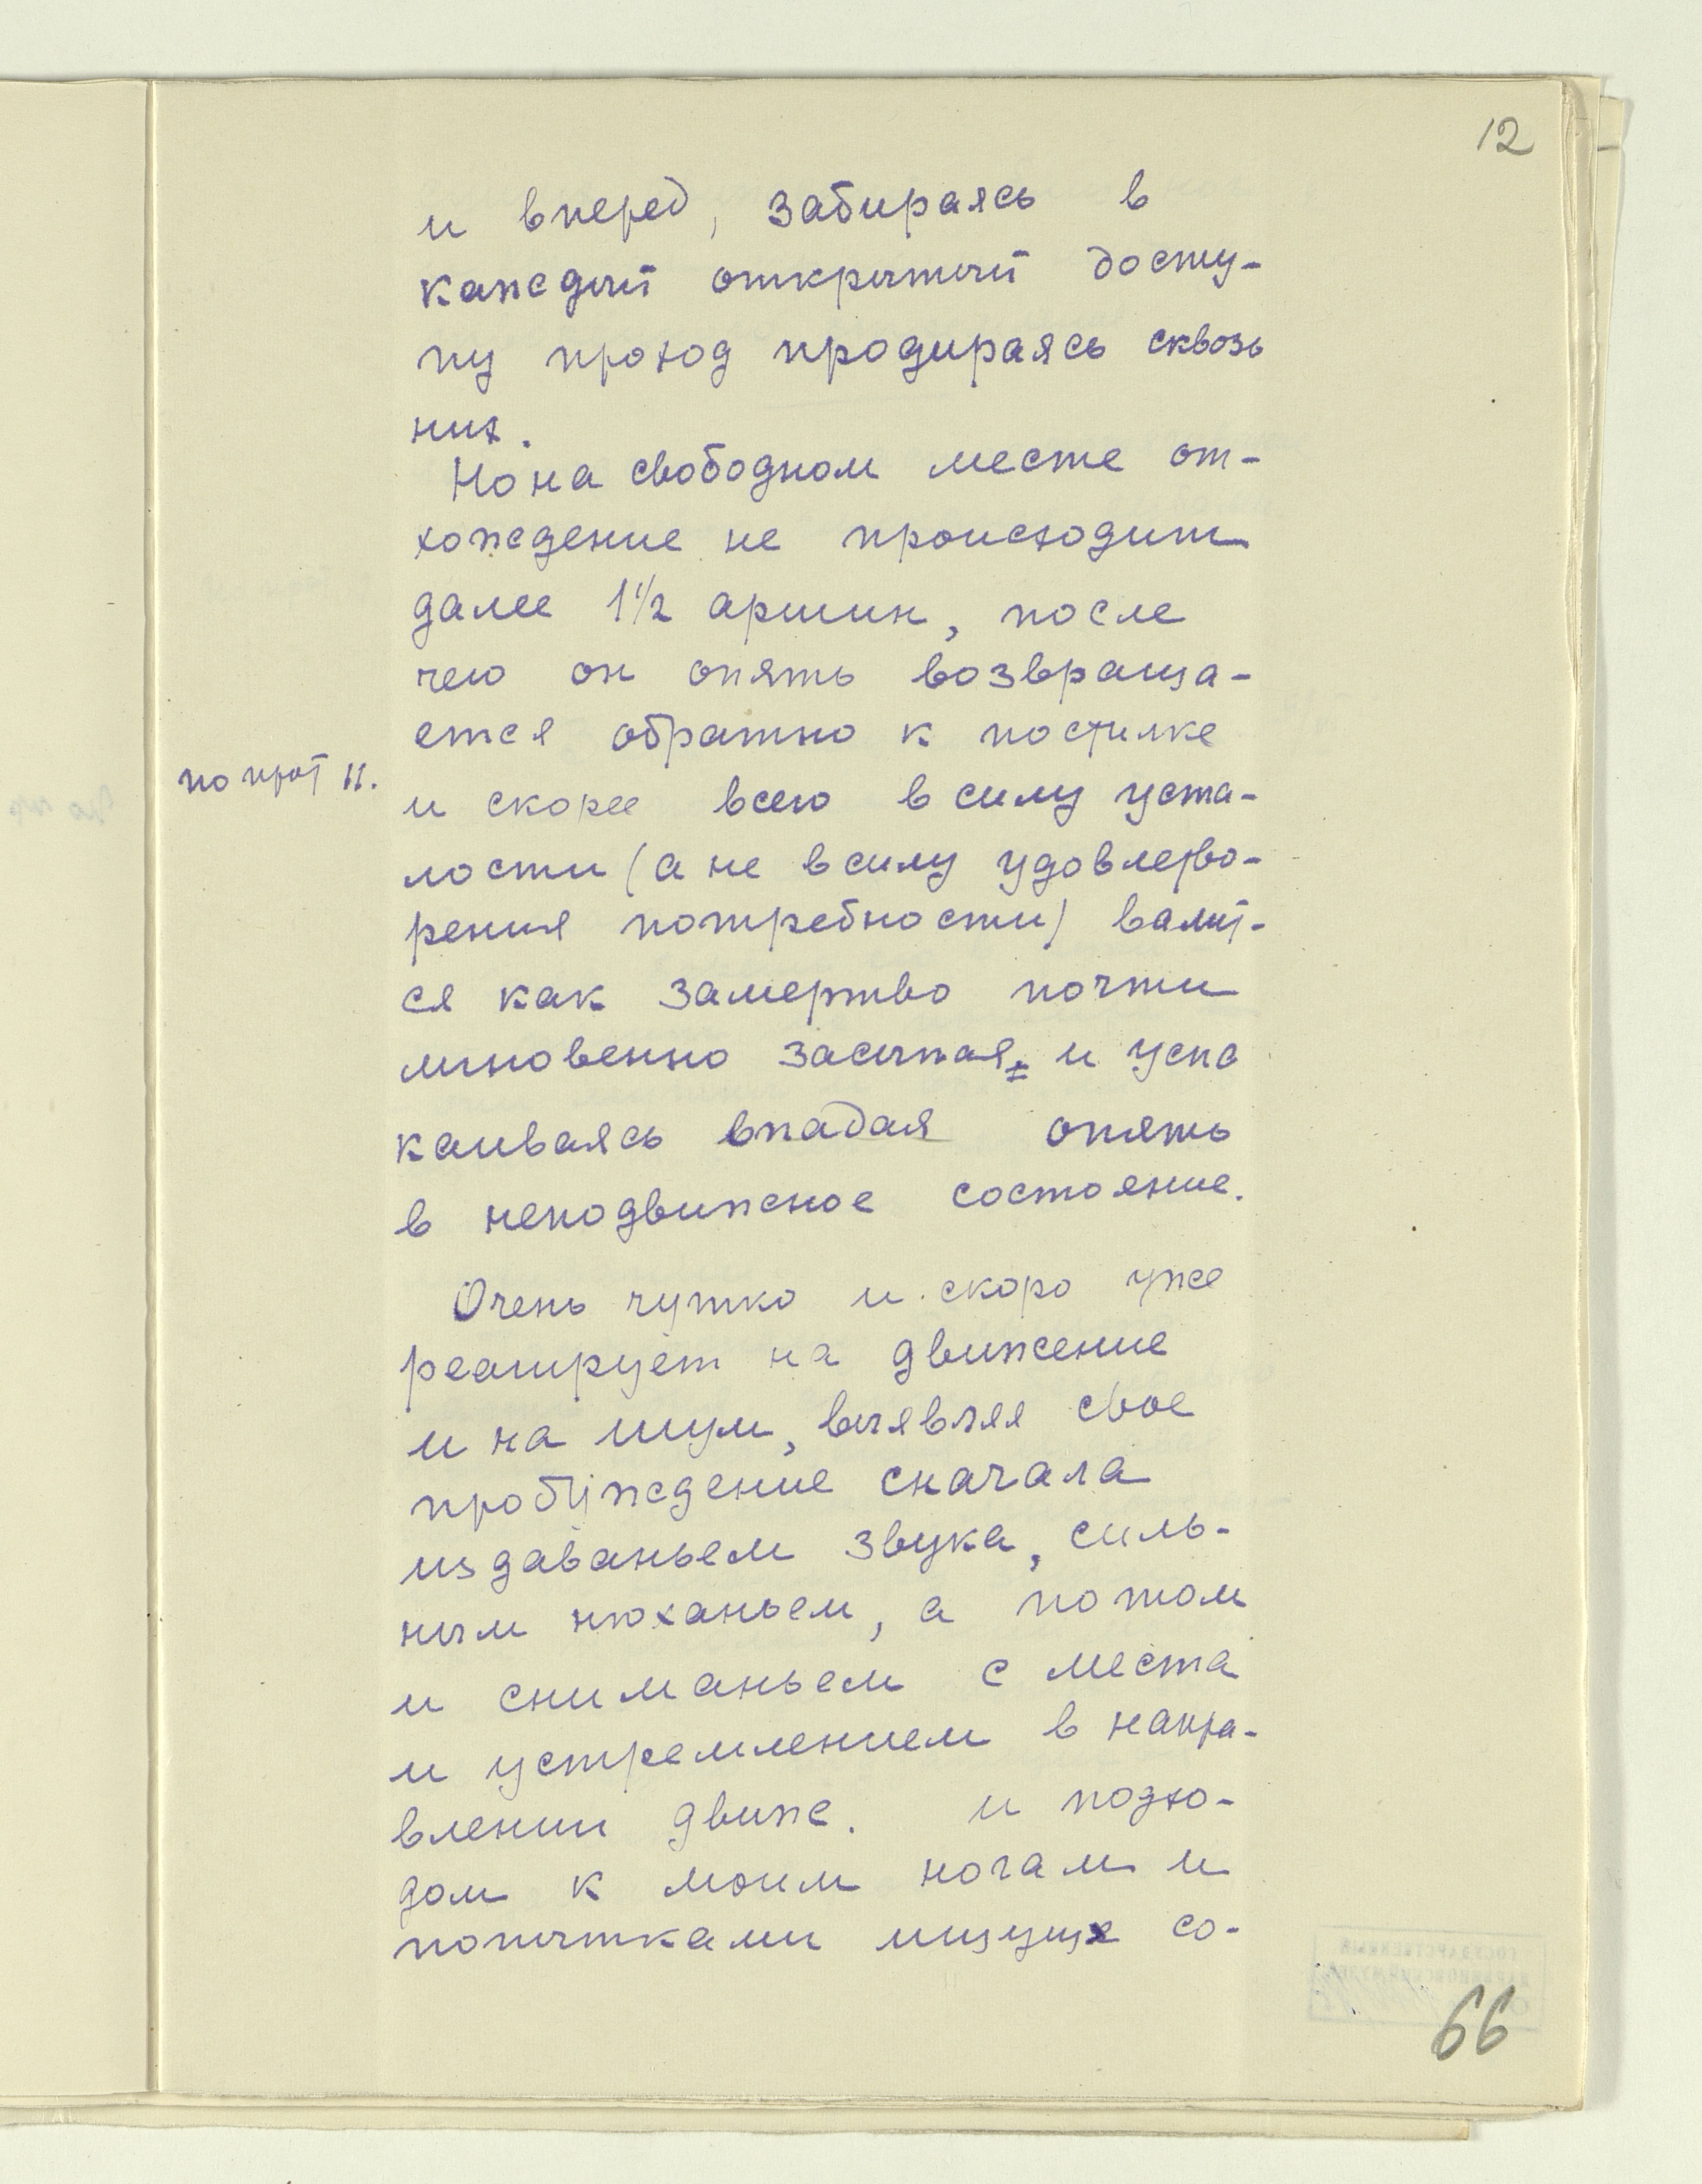 12
и вперед, забираясь в
каждый открытый досту-
пу проход продираясь сквозь
них.
Но на свободном месте от-
хождение не происходит
далее 1½ аршин, после
чего он опять возвраща-
ется обратно к постилке
по прот 11.
и скорее всего в силу уста-
лости (а не в силу удовлетво-
рения потребности) валит-
ся как замертво почти
мгновенно засыпая, и успо
каиваясь впадая опять
в неподвижное состояние.
Очень чутко и скоро уже
реагирует на движение
и на шум, выявляя свое
пробуждение сначала
издаваньем звука, силь-
ным нюханьем, а потом
и сниманьем с места
и устремлением в напра-
влении движ. и подхо-
дом к моим ногам и
попытками ищущ со-
66